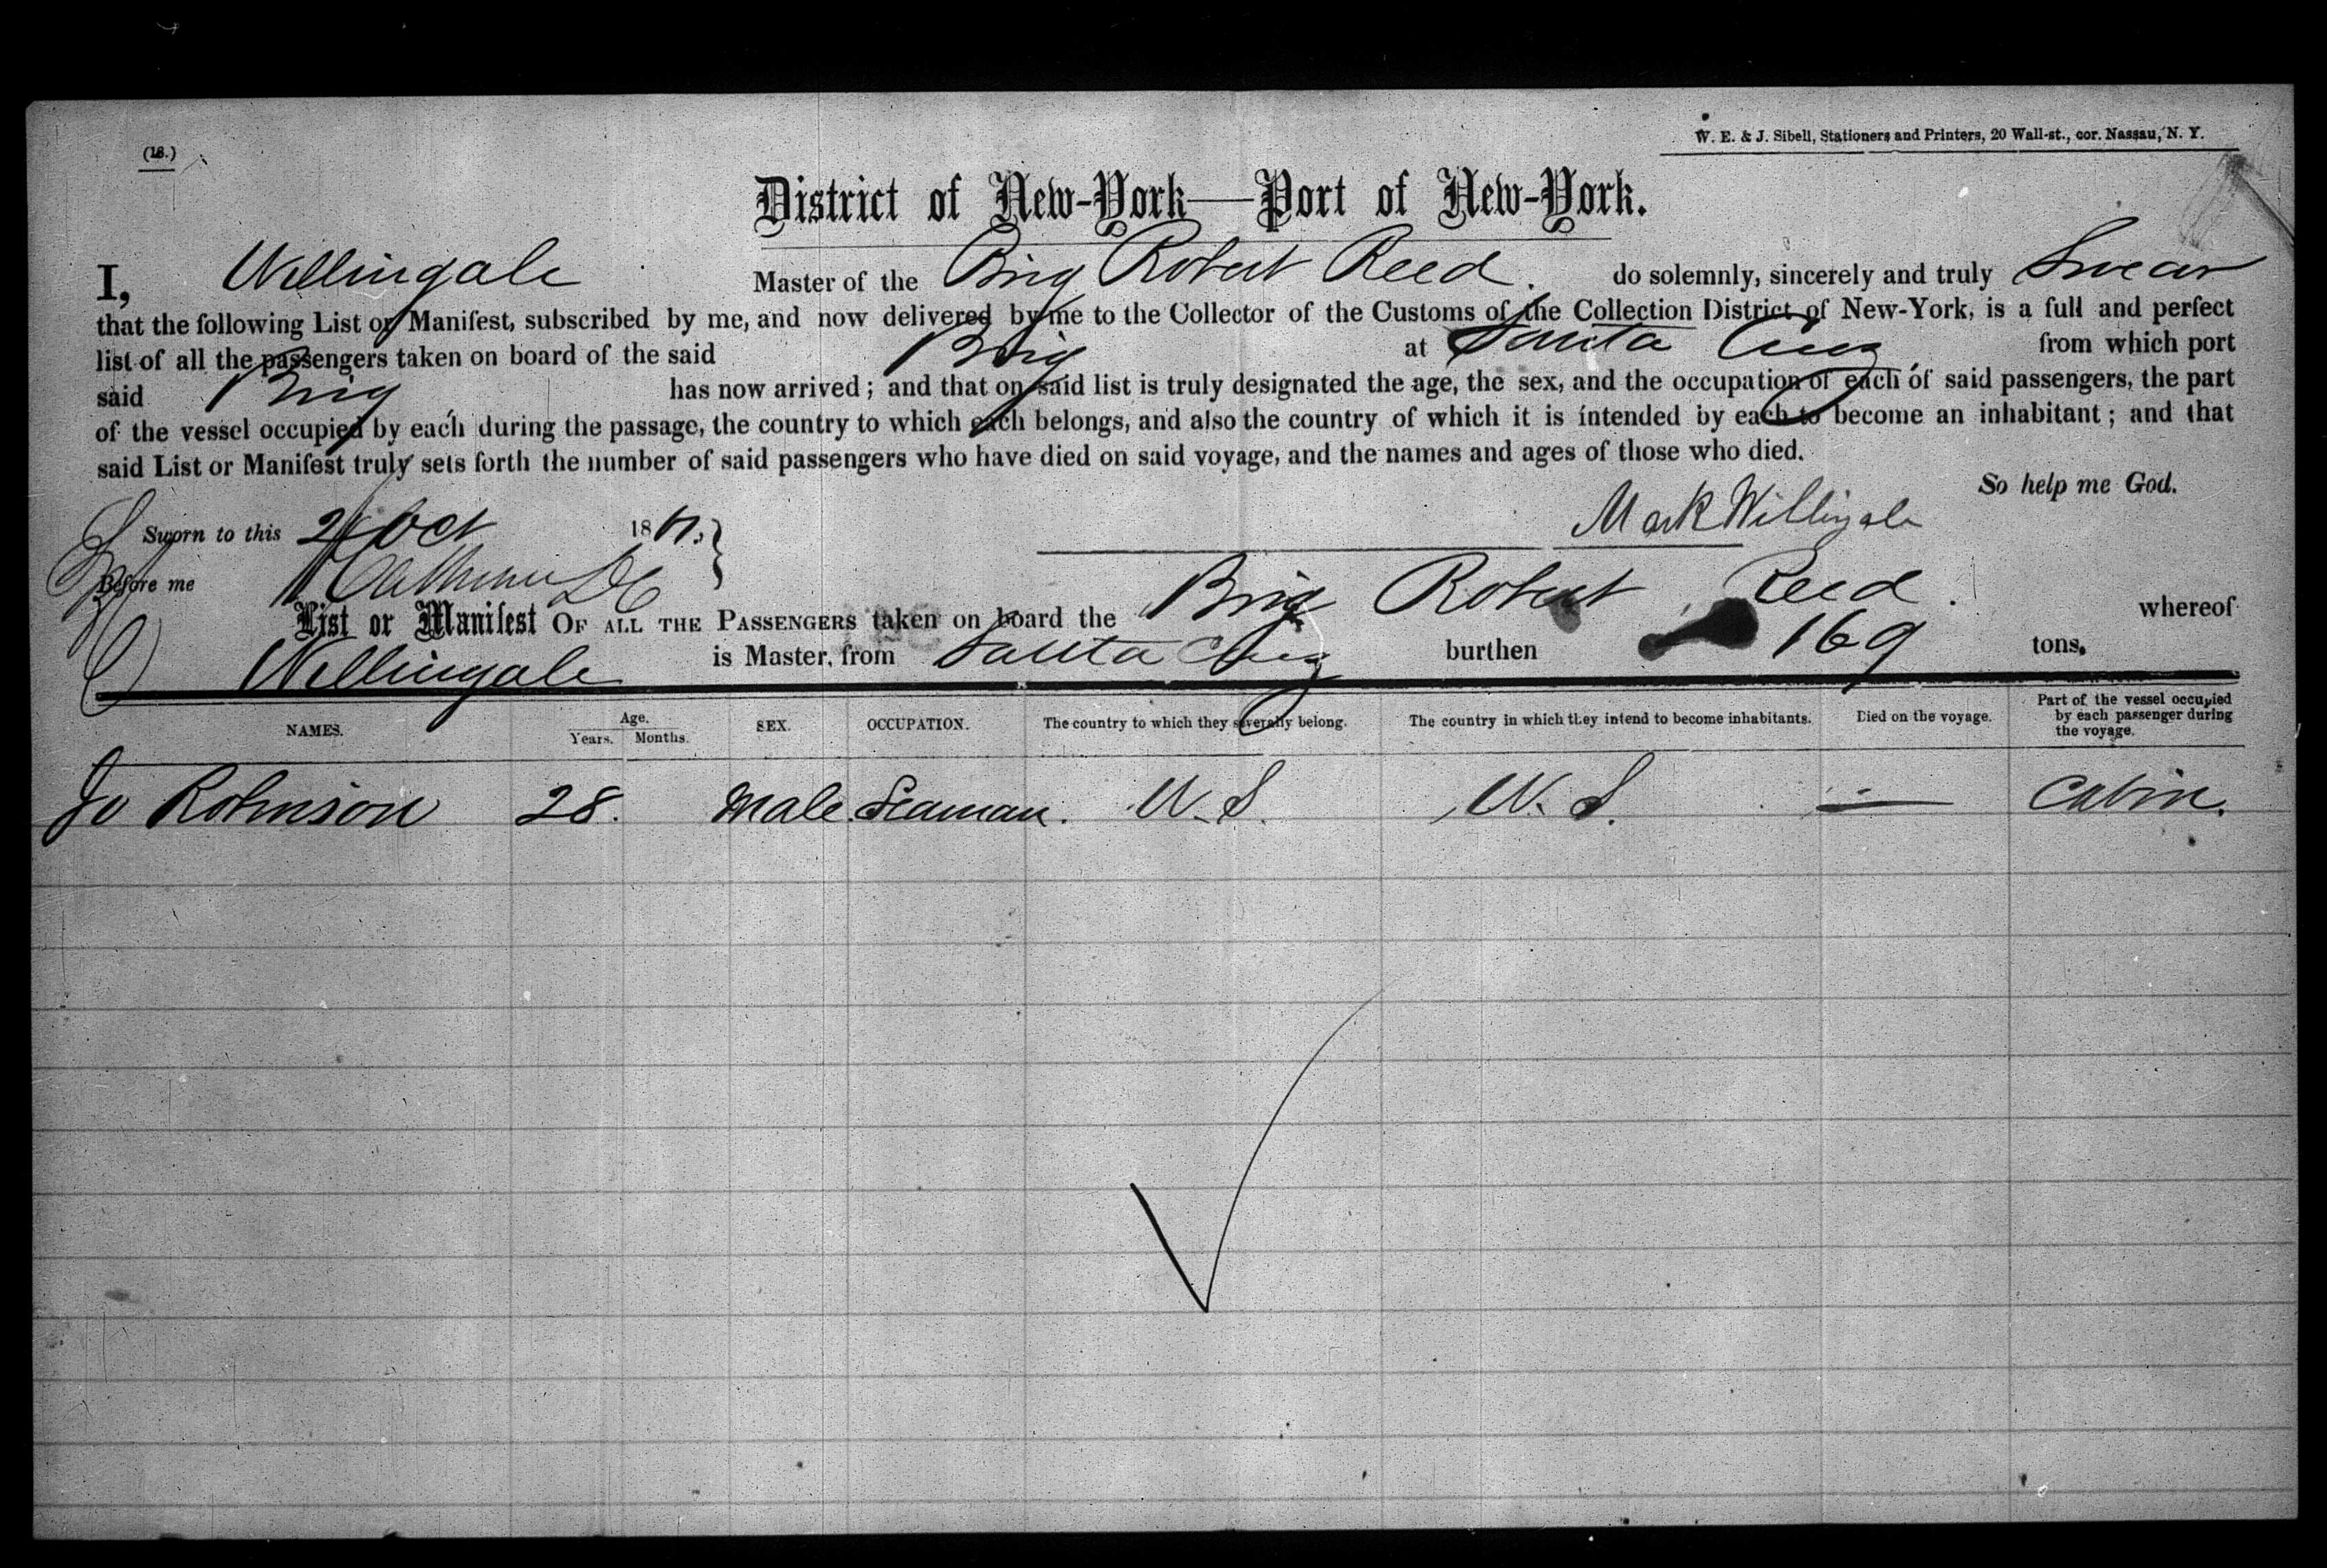 (18.)
W. E. & J. Sibell, Stationers and Printers, 20 Wall-st., cor. Nassau, N. Y.
District of New-York—Port of New-York.
I, Willingale Master of the Brig Robert Reed. do solemnly, sincerely and truly Swear
that the following List or Manifest, subscribed by me, and now delivered by me to the Collector of the Customs of the Collection District of New-York, is a full and perfect
list of all the passengers taken on board of the said Brig at Santa Cruz from which port
said Brig has now arrived; and that on said list is truly designated the age, the sex, and the occupation of each of said passengers, the part
of the vessel occupied by each during the passage, the country to which each belongs, and also the country of which it is intended by each to become an inhabitant; and that
said List or Manifest truly sets forth the number of said passengers who have died on said voyage, and the names and ages of those who died.
So help me God.
Sworn to this Oct 186
Mark Willingale
Before me
List or Manifest OF ALL THE PASSENGERS taken on board the Brig Robert Reed. whereof
Willingale is Master, from Santa Cruz burthen 169 tons.
NAMES. Age. Years. Months. SEX. OCCUPATION. The country to which they severally belong. The country in which they intend to become inhabitants. Died on the voyage. Part of the vessel occupied by each passenger during the voyage.
Jo Robinson 28. Male. Seaman. U.S. U.S. — Cabin.